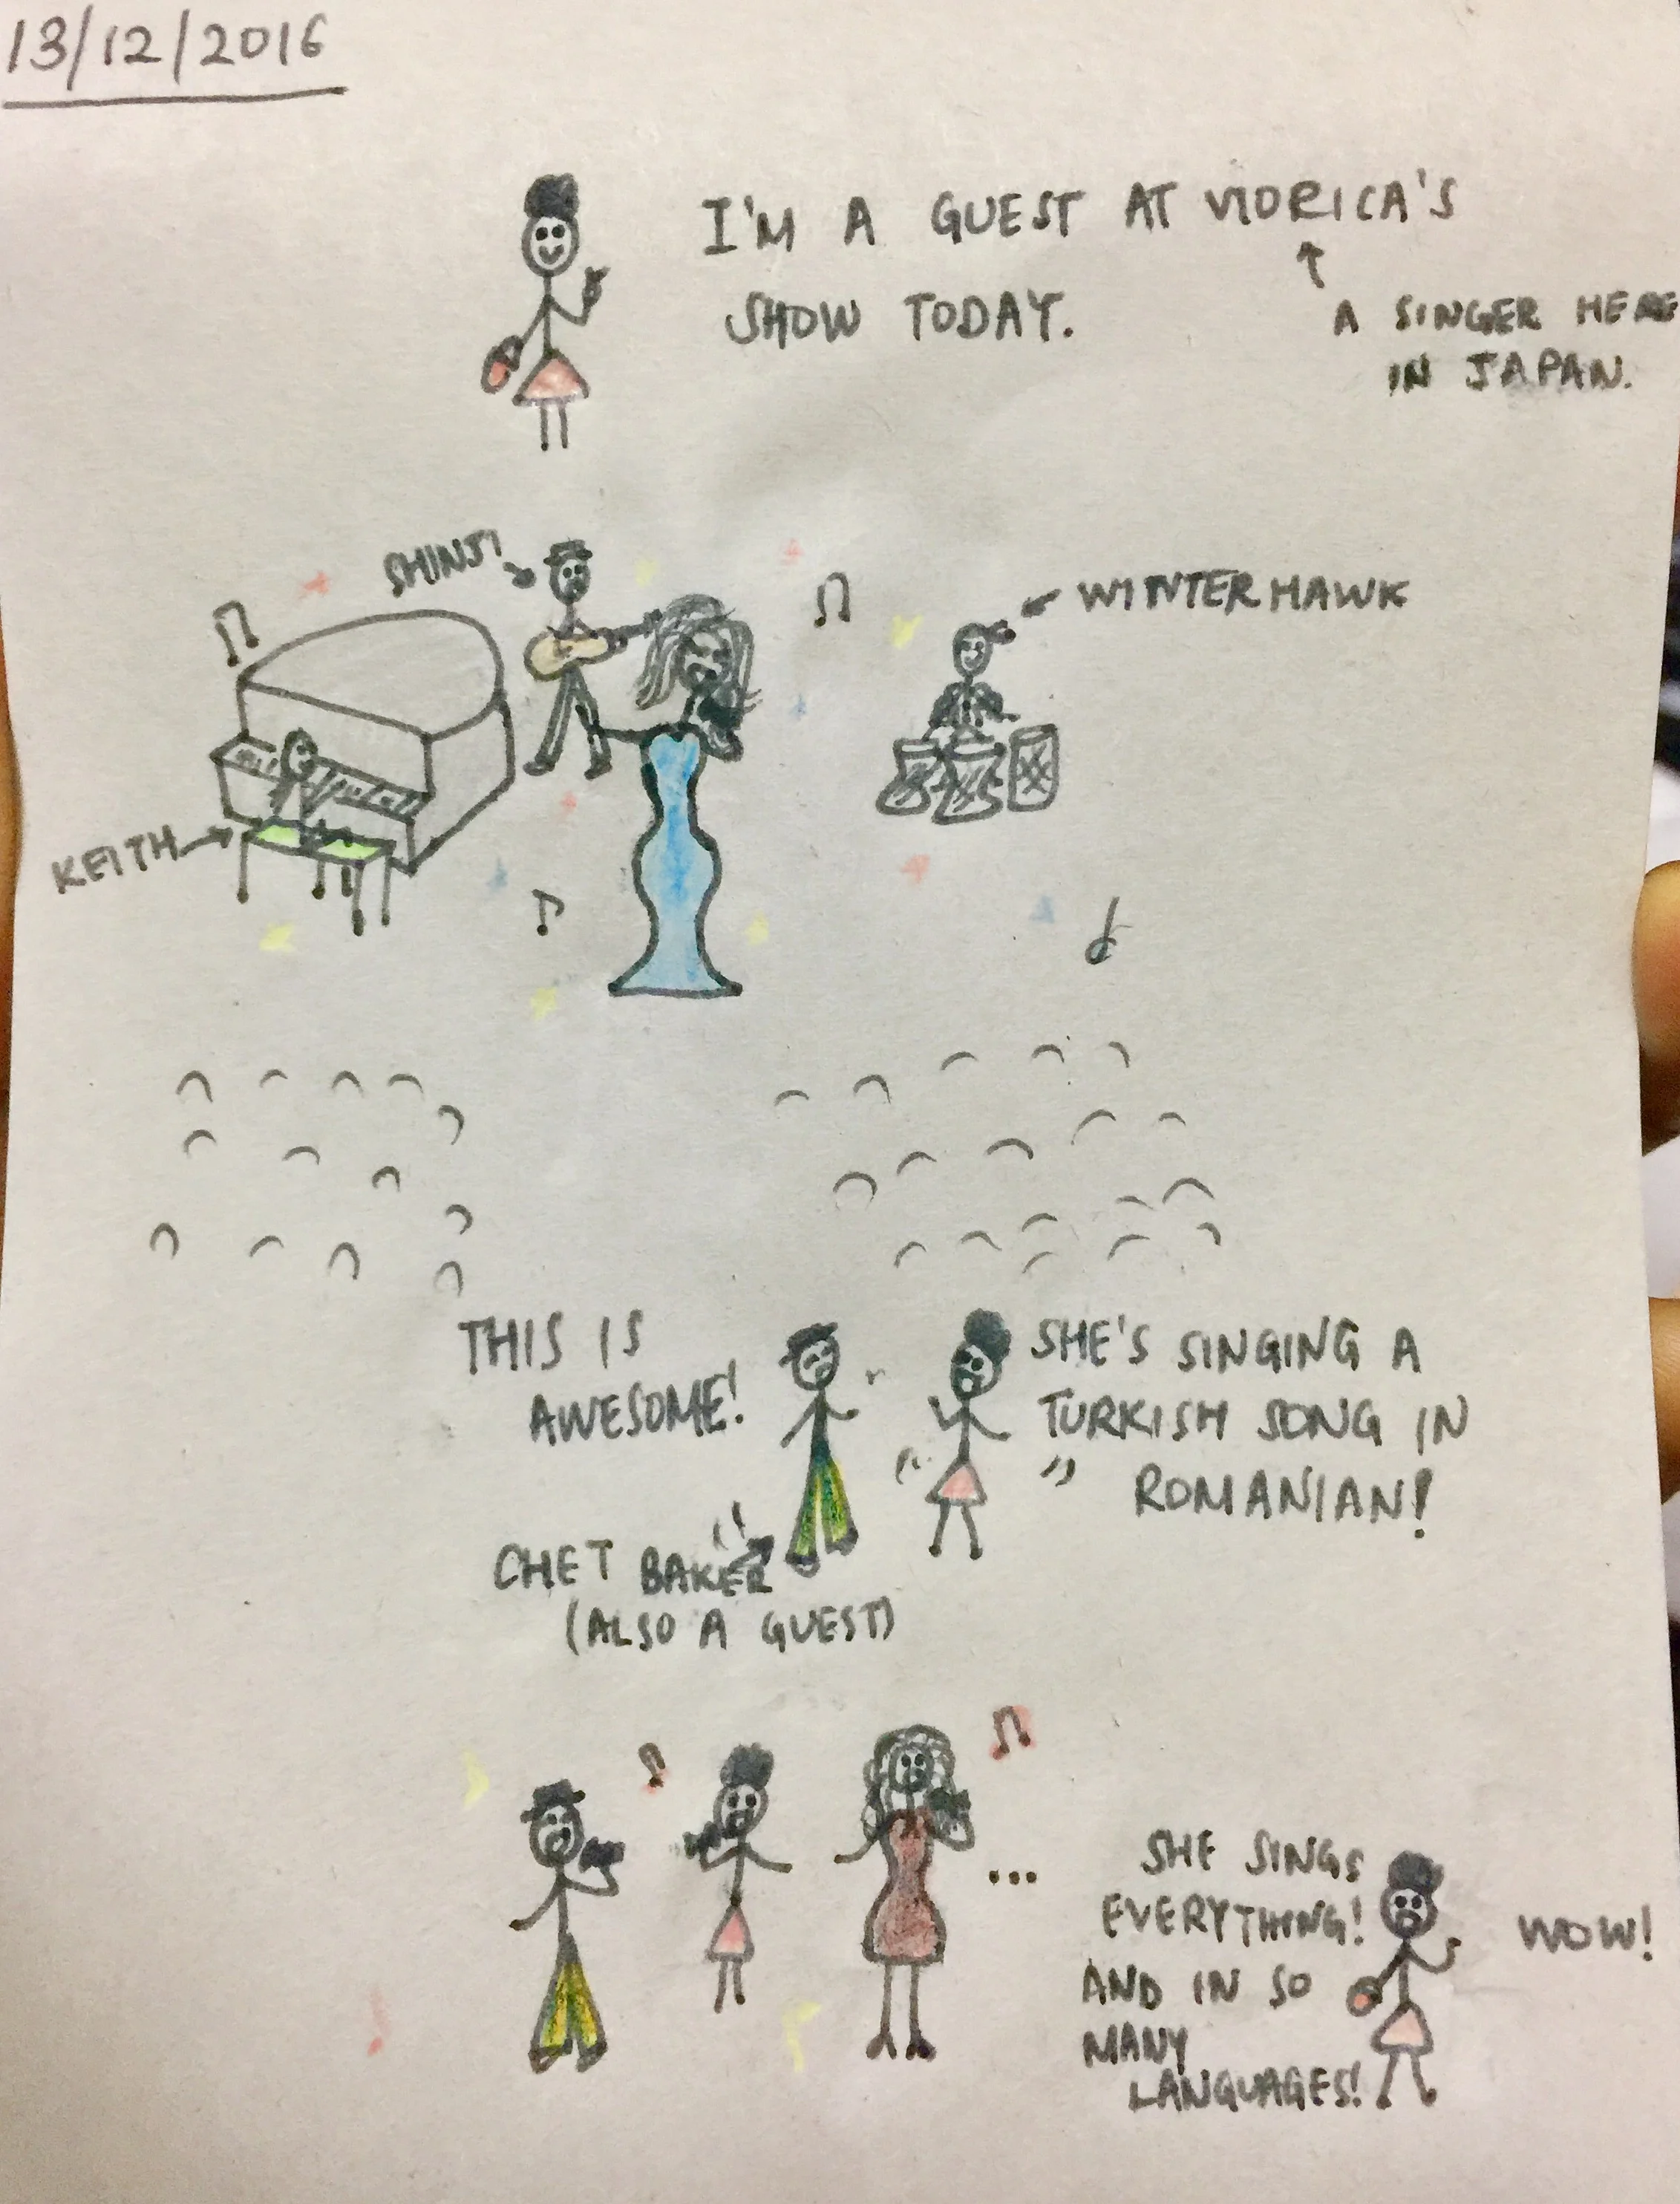 13/12/2016
I'M A GUEST AT VIORICA'S
SHOW TODAY.
A SINGER HERE
IN JAPAN.
SHINJI
WINTERHAWK
KEITH
THIS IS
AWESOME!
SHE'S SINGING A
TURKISH SONG IN
ROMANIAN!
CHET BAKER
(ALSO A GUEST)
...
SHE SINGS
EVERYTHING!
AND IN SO
MANY
LANGUAGES!
WOW!